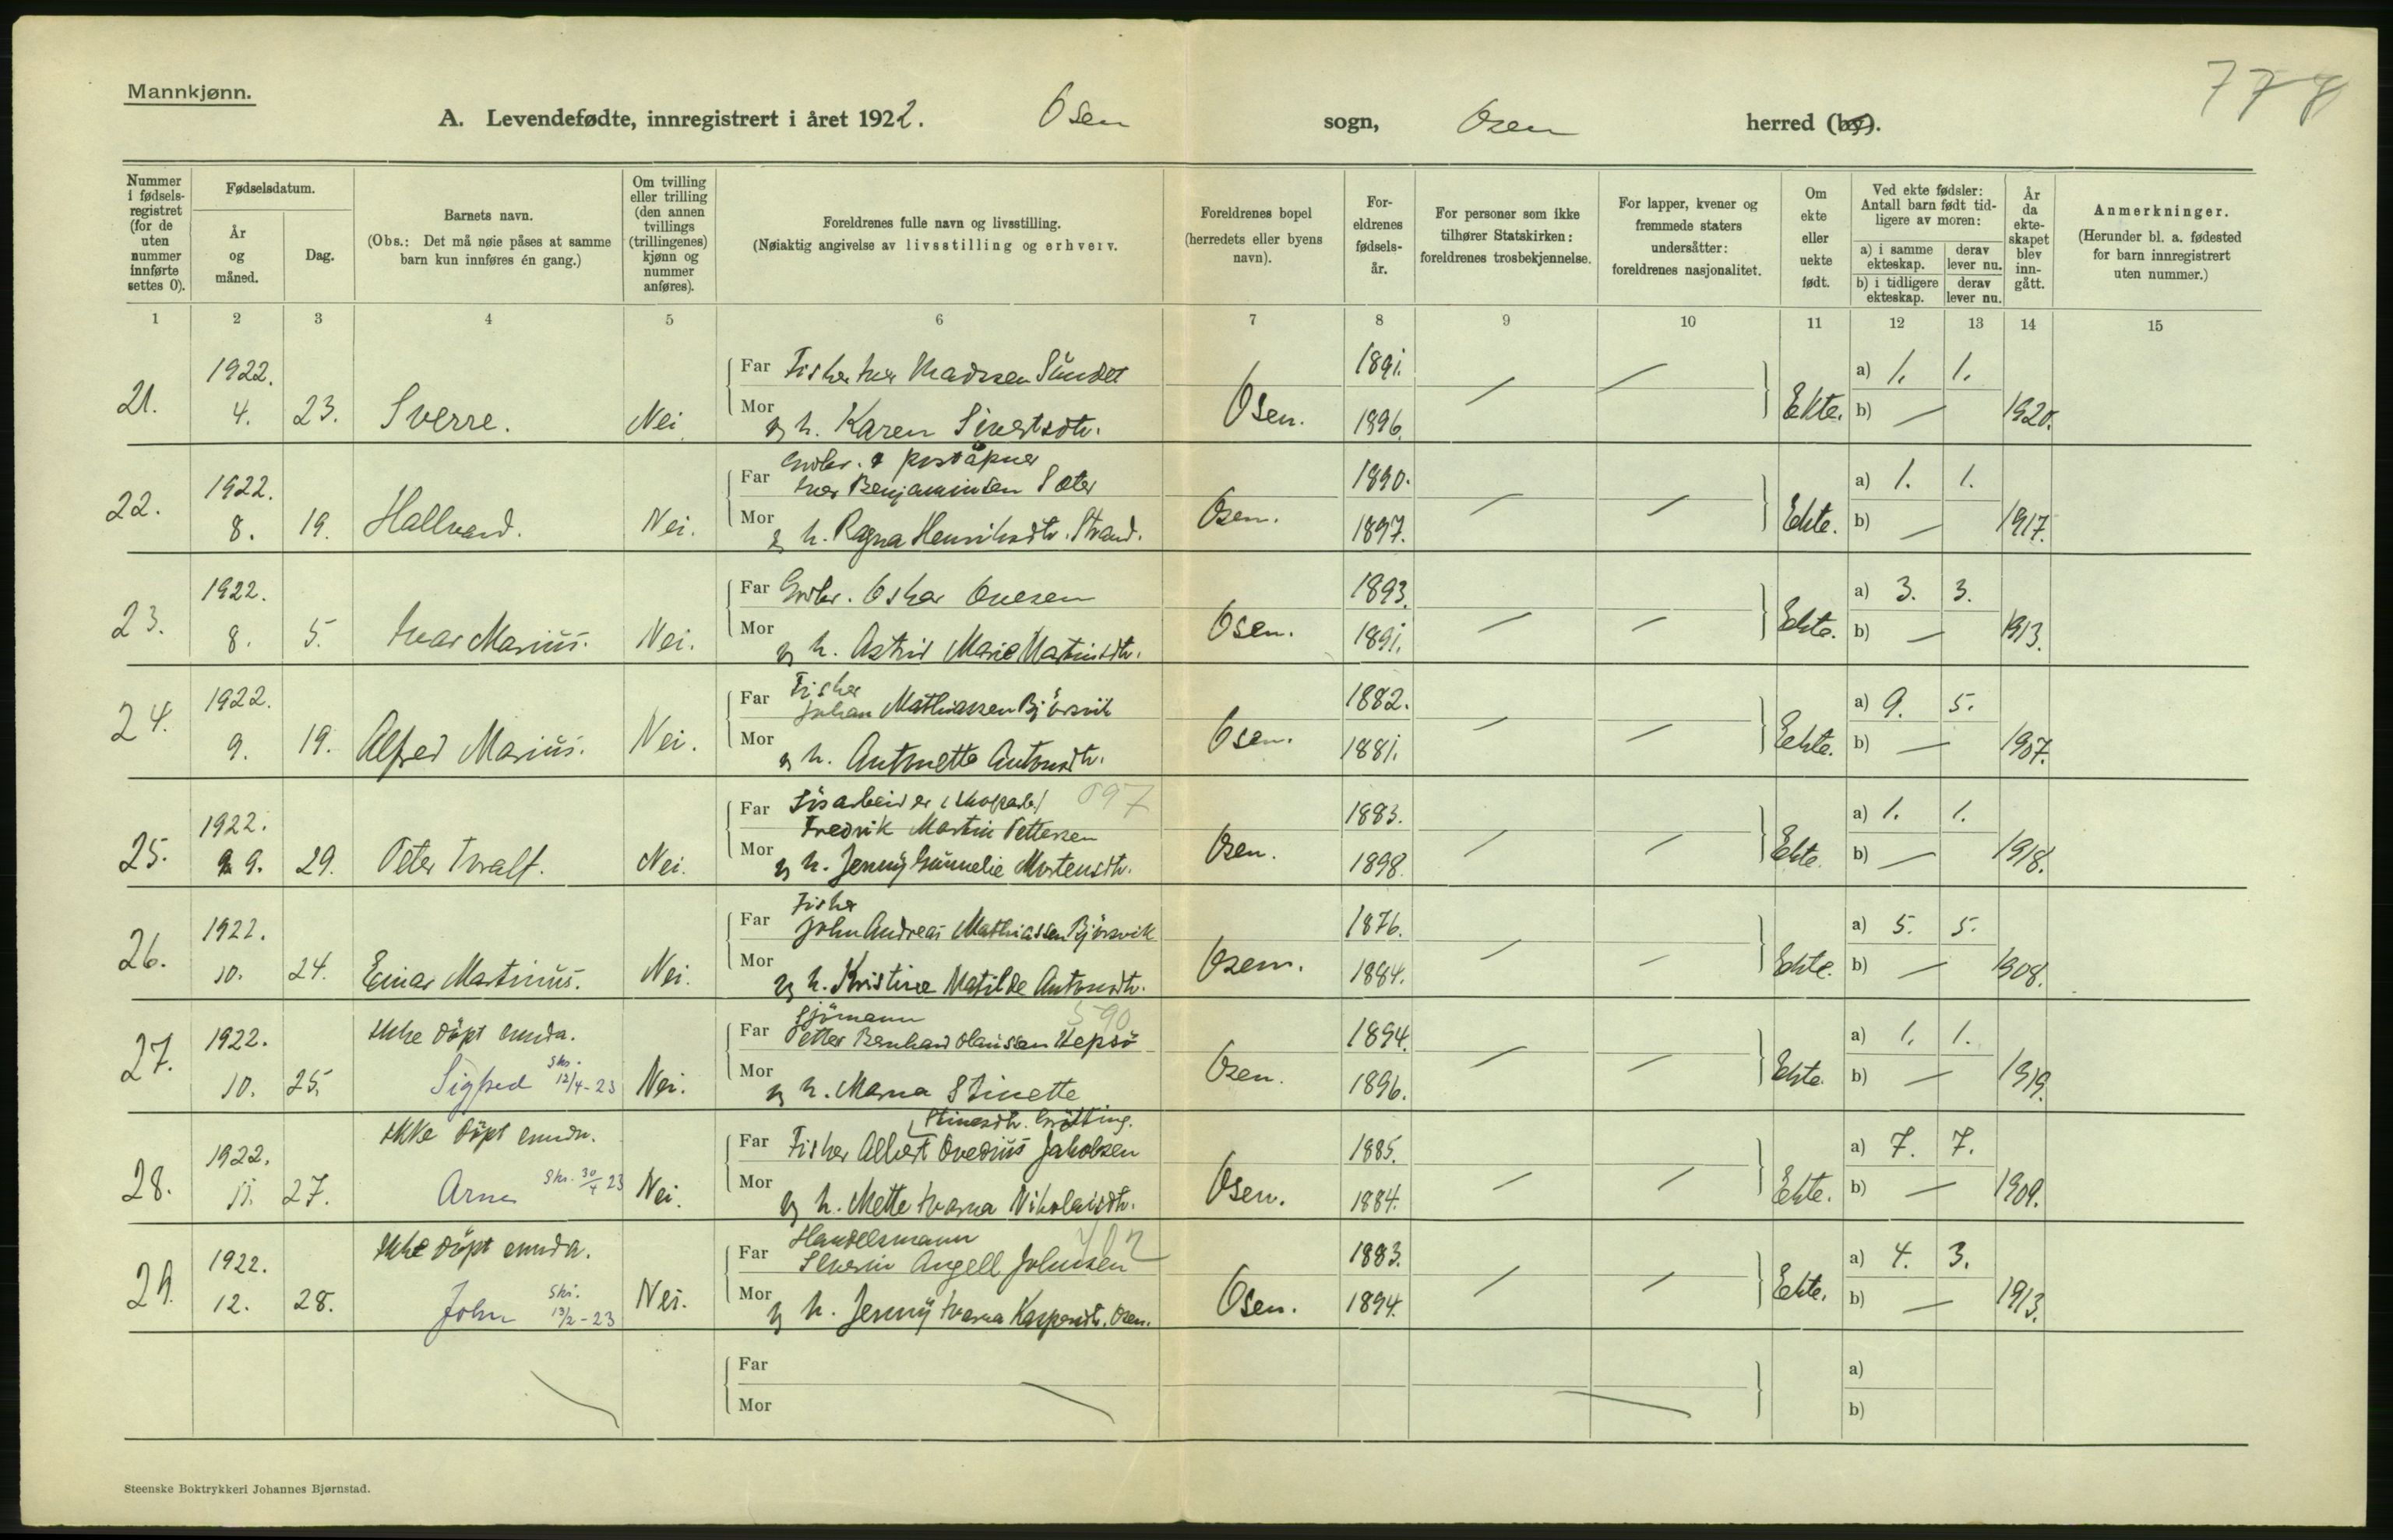 Mannkjønn.
778
A. Levendefødte, innregistrert i året 1922. Osen sogn, Osen herred (by).
Nummer i fødselsregistret (for de uten nummer innførte settes 0).
Fødselsdatum.
År og måned.
Dag.
Barnets navn.
(Obs.: Det må nøie påses at samme barn kun innføres én gang.)
Om tvilling eller trilling (den annen tvillings (trillingenes) kjønn og nummer anføres).
Foreldrenes fulle navn og livsstilling.
(Nøiaktig angivelse av livsstilling og erhverv.
Foreldrenes bopel (herredets eller byens navn).
Foreldrenes fødselsår.
For personer som ikke tilhører Statskirken: foreldrenes trosbekjennelse.
For lapper, kvener og fremmede staters undersåtter: foreldrenes nasjonalitet.
Om ekte eller uekte født.
Ved ekte fødsler: Antall barn født tidligere av moren:
a) i samme ekteskap.
derav lever nu.
b) i tidligere ekteskap.
derav lever nu.
År da ekteskapet blev inngått.
Anmerkninger.
(Herunder bl. a. fødested for barn innregistrert uten nummer.)
1 2 3 4 5 6 7 8 9 10 11 12 13 14 15
21. 1922. 4. 23. Sverre. Nei
Far Fisker Iver Madssen Sundet 1891. a) 1. 1.
Mor og h. Karen Sivertsdtr. Osen. 1896. Ekte. b) — 1920.
22. 1922. 8. 19. Hallvard. Nei.
Far Gvbr. & poståpner
Iver Benjaminsen Sæter 1890. a) 1. 1.
Mor og h. Ragna Henriksdtr. Strand. Osen. 1897. Ekte. b) — 1917.
23. 1922. 8. 5. Ivar Marius. Nei.
Far Gvbr. Oskar Ovesen 1893. a) 3. 3.
Mor og h. Astrid Marie Martinsdtr. Osen. 1891. Ekte. b) — 1913.
24. 1922. 9. 19. Alfred Marius. Nei.
Far Fisker
Johan Mathiassen Bjørsvik 1882. a) 9. 5.
Mor og h. Antonette Antonsdtr. Osen. 1881. Ekte. b) — 1907.
25. 1922. 9. 29. Peter Tvalf. Nei.
Far Løsarbeider
Fredrik Martin Pettersen 1883. a) 1. 1.
Mor og h. Jenny Gunnelie Mortensdtr. Osen. 1898. Ekte. b) — 1918.
26. 1922. 10. 24. Einar Martinus. Nei.
Far Fisker
John Andreas Mathiassen Bjørsvik 1876. a) 5. 5.
Mor og h. Kristine Matilde Antonsdtr. Osen. 1884. Ekte. b) — 1908.
27. 1922. 10. 25. Ikke døpt ennda.
Sigfred Skr. 12/4-23 Nei.
Far Sjømann 590
Petter Bernhard Olaussen Vepsø 1894. a) 1. 1.
Mor og h. Marna Stinette Osen. 1896. Ekte. b) — 1919.
Stinesdtr. Grøtting.
28. 1922. 11. 27. Ikke døpt ennda.
Arne Skr. 30/4 23 Nei.
Far Fisker Albert Ovedius Jakobsen 1885. a) 7. 7.
Mor og h. Mette Ivarna Nikolaisdtr. Osen. 1884. Ekte. b) — 1909.
29. 1922. 12. 28. Ikke døpt ennda.
John Skr. 13/2-23 Nei.
Far Handelsmann
Severin Angell Johnsen 1883. a) 4. 3.
Mor og h. Jenny Ivarna Kaspersdtr. Osen. Osen. 1894. Ekte. b) — 1913.
Far a)
Mor b)
Steenske Boktrykkeri Johannes Bjørnstad.